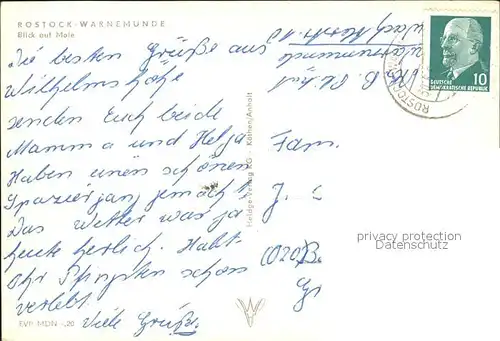 ROSTOCK-WARNEMÜNDE
Blick auf Mole
die besten Grüße aus
Wilhelmshöhe
senden Euch beide
Mamma und Helga
Haben einen schönen
Spaziergang gemacht.
Das Wetter war ja
heute herlich. Habt
ihr Pfingsten schon
verlebt.
Viele Grüße
EVP MDN -,20
Heldge-Verlag KG · Köthen/Anhalt
10
DEUTSCHE
DEMOKRATISCHE REPUBLIK
ROSTOCK
Fam.
J.
(1020) B
privacy protection
Datenschutz